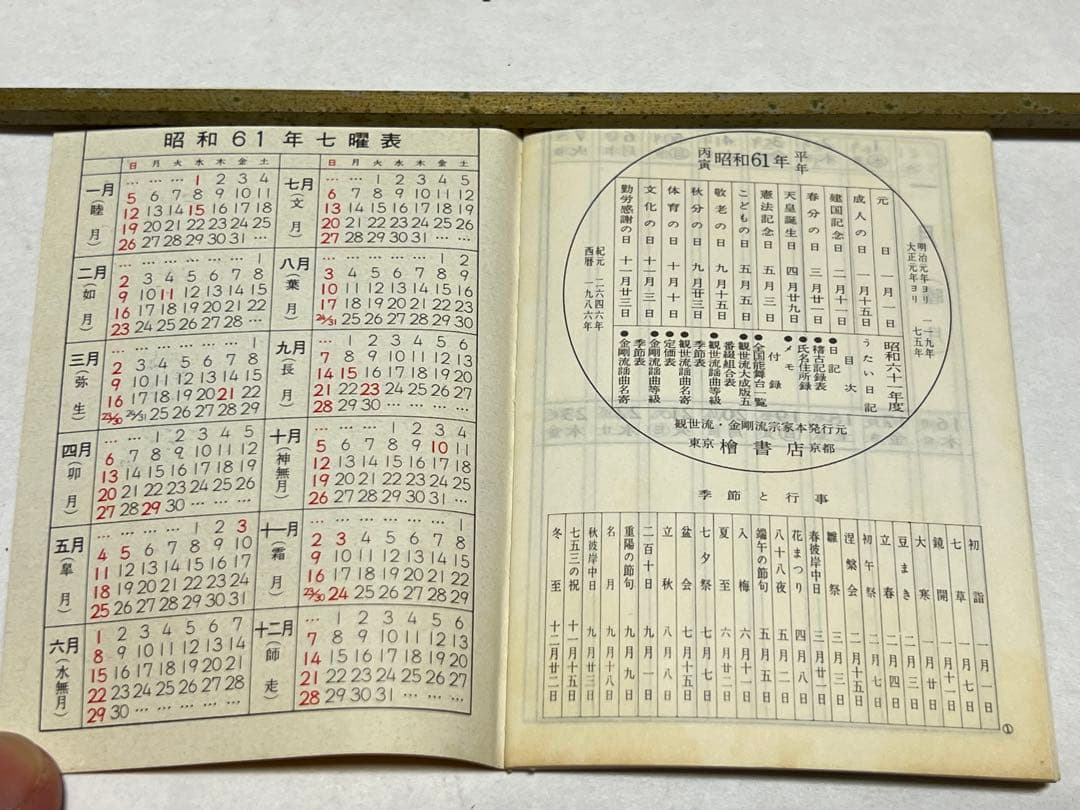 昭和61年七曜表
日 月 火 水 木 金 土
一月
(睦月)
… … … 1 2 3 4
5 6 7 8 9 10 11
12 13 14 15 16 17 18
19 20 21 22 23 24 25
26 27 28 29 30 31 …
二月
(如月)
… … … … … … 1
2 3 4 5 6 7 8
9 10 11 12 13 14 15
16 17 18 19 20 21 22
23 24 25 26 27 28 …
三月
(弥生)
… … … … … … 1
2 3 4 5 6 7 8
9 10 11 12 13 14 15
16 17 18 19 20 21 22
23/30 24/31 25 26 27 28 29
四月
(卯月)
… … 1 2 3 4 5
6 7 8 9 10 11 12
13 14 15 16 17 18 19
20 21 22 23 24 25 26
27 28 29 30 … … …
五月
(皐月)
… … … … 1 2 3
4 5 6 7 8 9 10
11 12 13 14 15 16 17
18 19 20 21 22 23 24
25 26 27 28 29 30 31
六月
(水無月)
1 2 3 4 5 6 7
8 9 10 11 12 13 14
15 16 17 18 19 20 21
22 23 24 25 26 27 28
29 30 … … … … …
日 月 火 水 木 金 土
七月
(文月)
… … 1 2 3 4 5
6 7 8 9 10 11 12
13 14 15 16 17 18 19
20 21 22 23 24 25 26
27 28 29 30 31 … …
八月
(葉月)
… … … … … 1 2
3 4 5 6 7 8 9
10 11 12 13 14 15 16
17 18 19 20 21 22 23
24/31 25 26 27 28 29 30
九月
(長月)
… 1 2 3 4 5 6
7 8 9 10 11 12 13
14 15 16 17 18 19 20
21 22 23 24 25 26 27
28 29 30 … … … …
十月
(神無月)
… … … 1 2 3 4
5 6 7 8 9 10 11
12 13 14 15 16 17 18
19 20 21 22 23 24 25
26 27 28 29 30 31 …
十一月
(霜月)
… … … … … … 1
2 3 4 5 6 7 8
9 10 11 12 13 14 15
16 17 18 19 20 21 22
23/30 24 25 26 27 28 29
十二月
(師走)
… 1 2 3 4 5 6
7 8 9 10 11 12 13
14 15 16 17 18 19 20
21 22 23 24 25 26 27
28 29 30 31 … … …
丙寅 昭和61年 平年
明治元年ヨリ 一一九年
大正元年ヨリ 七五年
元日 一月一日
成人の日 一月十五日
建国記念日 二月十一日
春分の日 三月廿一日
天皇誕生日 四月廿九日
憲法記念日 五月三日
こどもの日 五月五日
敬老の日 九月十五日
秋分の日 九月廿三日
体育の日 十月十日
文化の日 十一月三日
勤労感謝の日 十一月廿三日
紀元 二六四六年
西暦 一九八六年
昭和六十一年度
うたい日記
目次
●日記
●稽古記録表
●氏名住所録
●メモ
付録
●全国能舞台一覧
●観世流大成版五
番綴組合表
●観世流謡曲等級
季節表
●観世流謡曲名寄
●定価表
●金剛流謡曲等級
季節表
●金剛流謡曲名寄
観世流・金剛流宗家本発行元
東京 檜書店 京都
季節と行事
初詣 一月一日
七草 一月七日
鏡開 一月十一日
大寒 一月廿日
豆まき 二月三日
立春 二月四日
初午祭 二月七日
涅槃会 二月十五日
雛祭 三月三日
春彼岸中日 三月廿一日
花まつり 四月八日
八十八夜 五月二日
端午の節句 五月五日
入梅 六月十一日
夏至 六月廿二日
七夕祭 七月七日
盆会 七月十五日
立秋 八月八日
二百十日 九月一日
重陽の節句 九月九日
名月 九月十八日
秋彼岸中日 九月廿三日
七五三の祝 十一月十五日
冬至 十二月廿二日
①